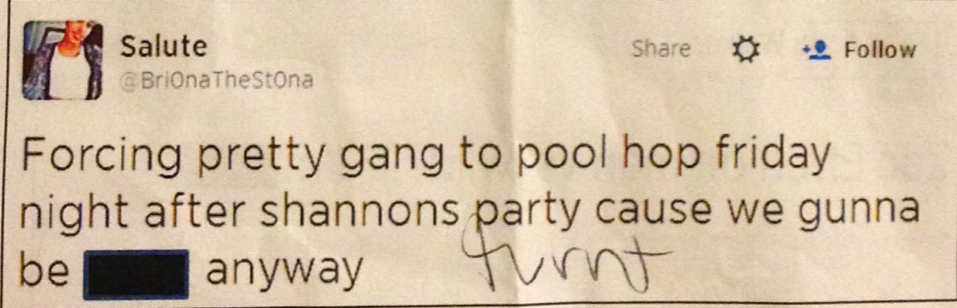 Salute
Share Follow
@Bri0naTheSt0na
Forcing pretty gang to pool hop friday
night after shannons party cause we gunna
be anyway
turnt